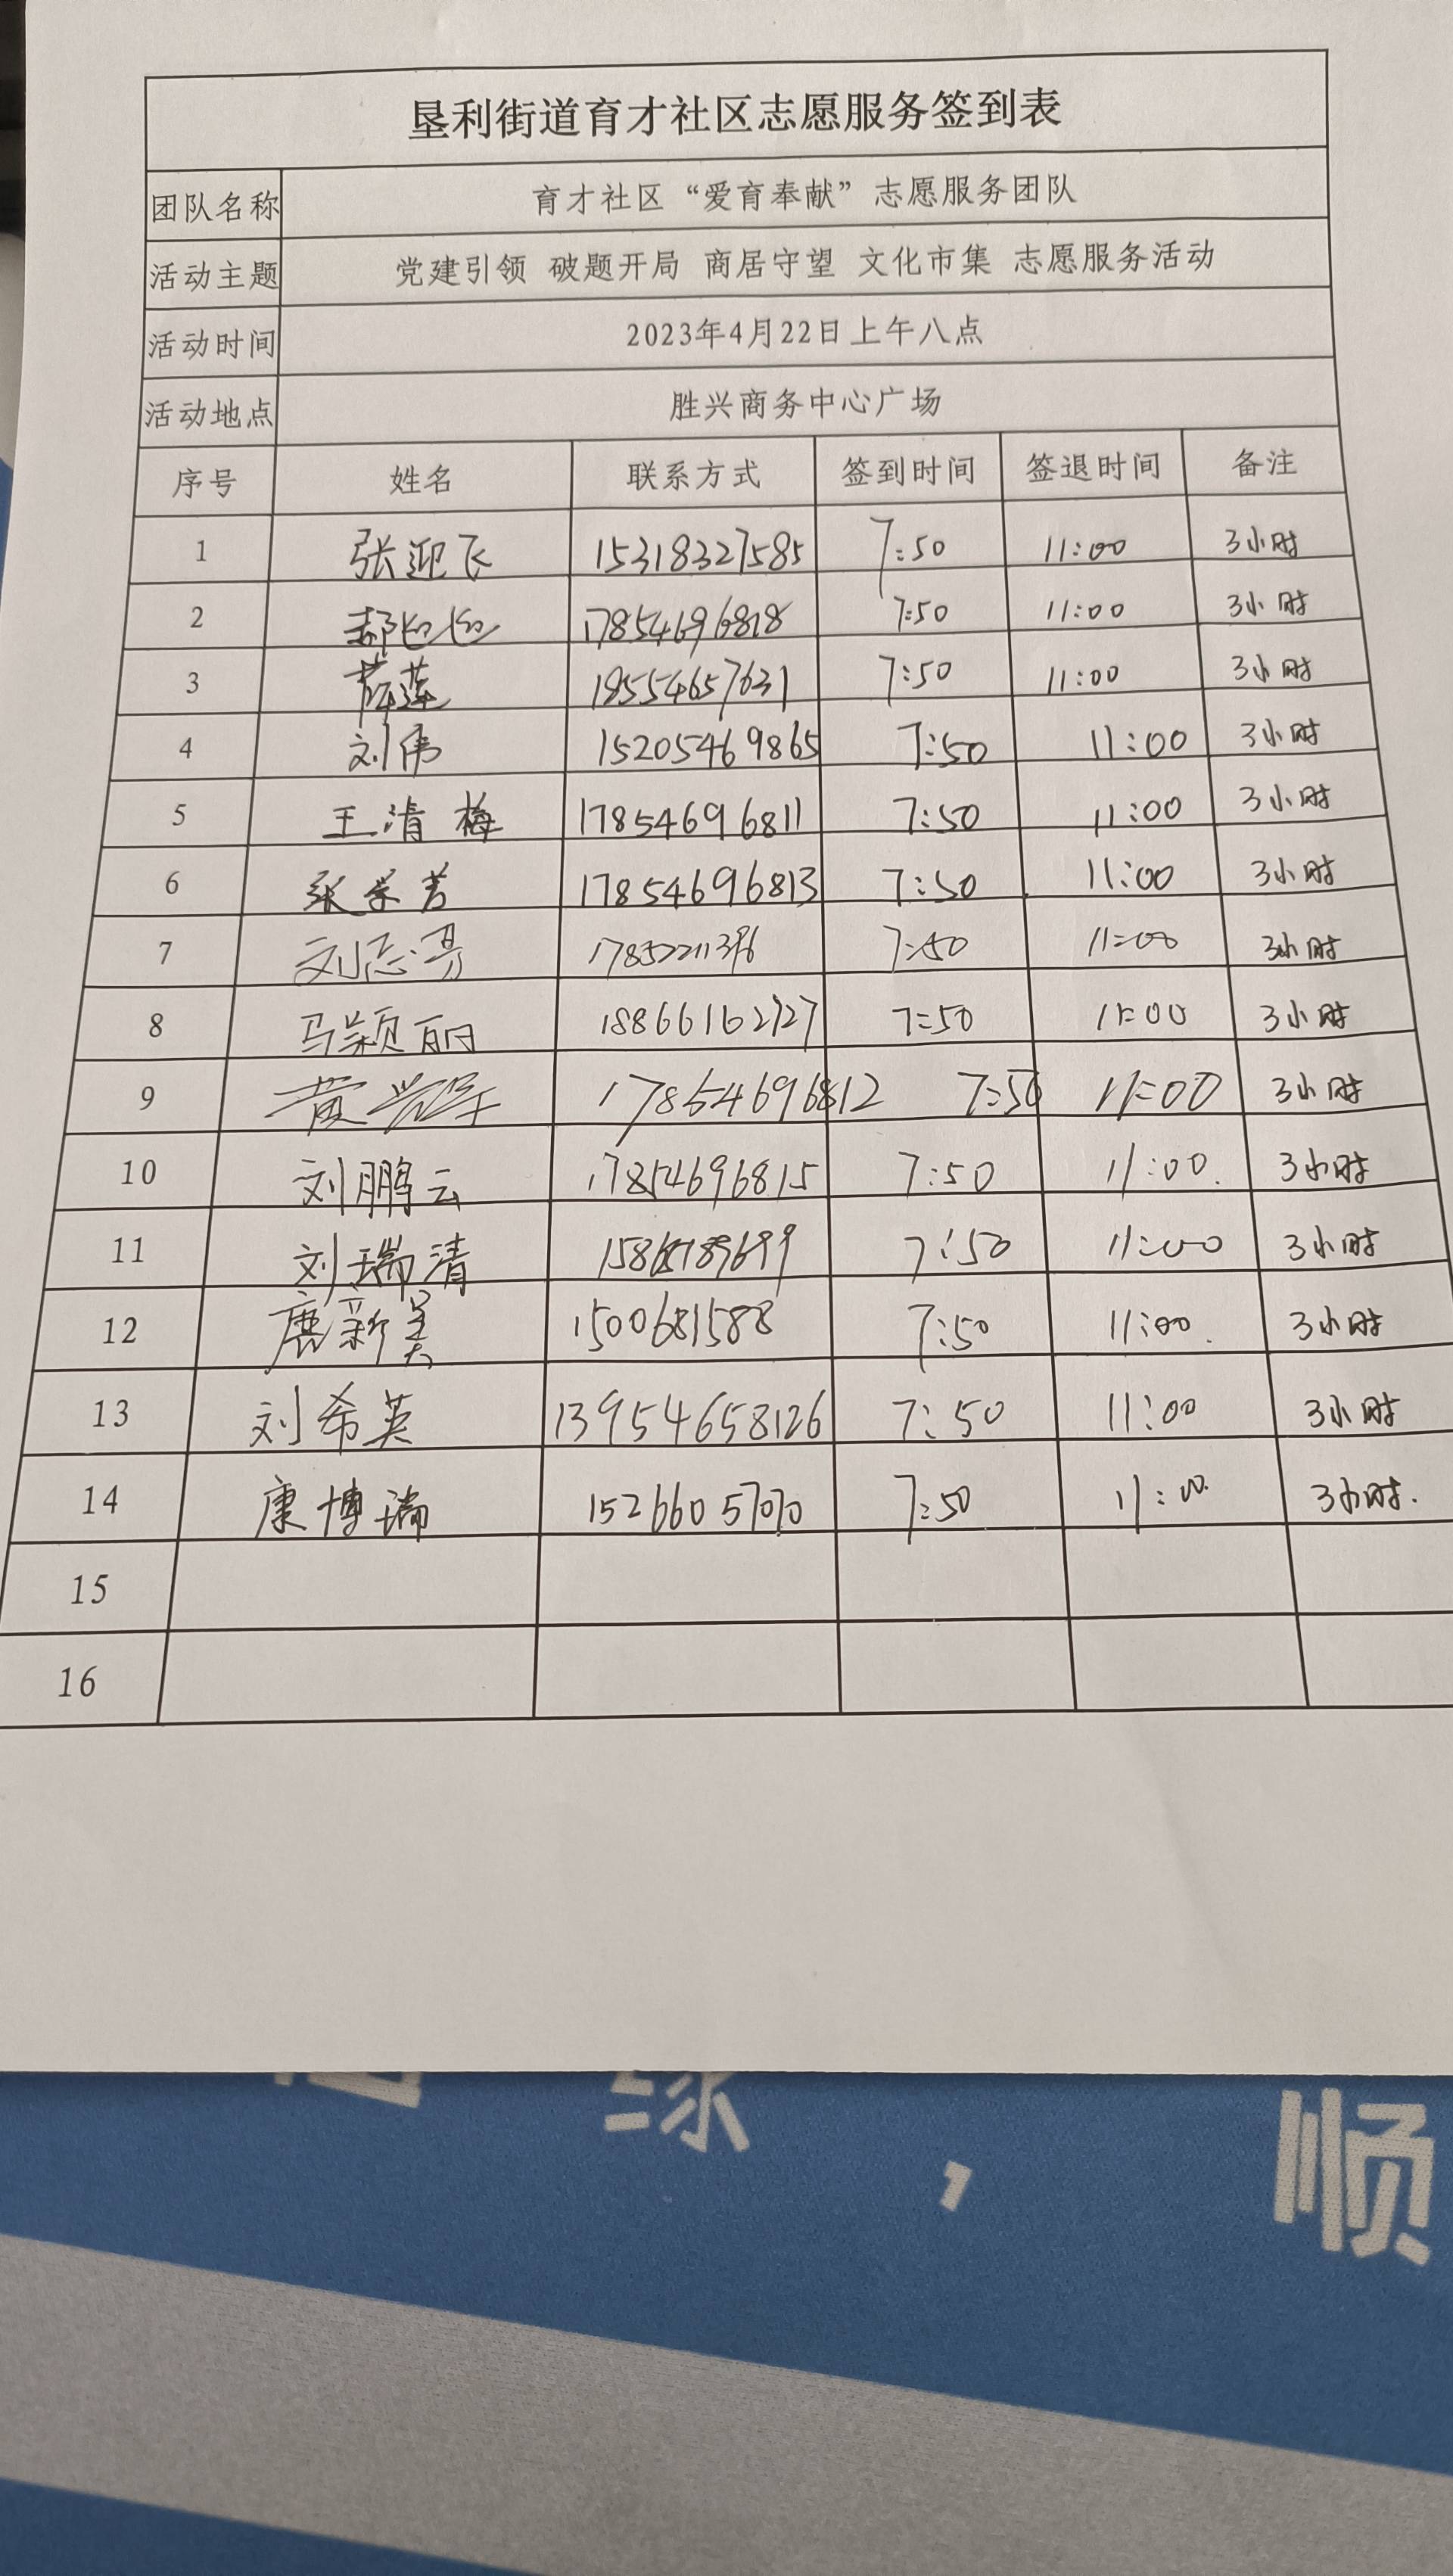 垦利街道育才社区志愿服务签到表
团队名称 育才社区“爱育奉献”志愿服务团队
活动主题 党建引领 破题开局 商居守望 文化市集 志愿服务活动
活动时间 2023年4月22日上午八点
活动地点 胜兴商务中心广场
序号 姓名 联系方式 签到时间 签退时间 备注
1 张迎飞 15318327585 7:50 11:00 3小时
2 17854696818 7:50 11:00 3小时
3 薛莲 18554657631 7:50 11:00 3小时
4 刘伟 15205469865 7:50 11:00 3小时
5 王清梅 17854696811 7:50 11:00 3小时
6 17854696813 7:50 11:00 3小时
7 刘志亮 7:50 11:00 3小时
8 马颖丽 18866162727 7:50 11:00 3小时
9 17854696812 7:50 11:00 3小时
10 刘鹏云 17854696815 7:50 11:00. 3小时
11 刘瑞清 7:50 11:00 3小时
12 唐新美 1500681588 7:50 11:00. 3小时
13 刘希英 13954658126 7:50 11:00 3小时
14 康博瑞 15266057070 7:50 11:00. 3小时.
15
16
，
顺